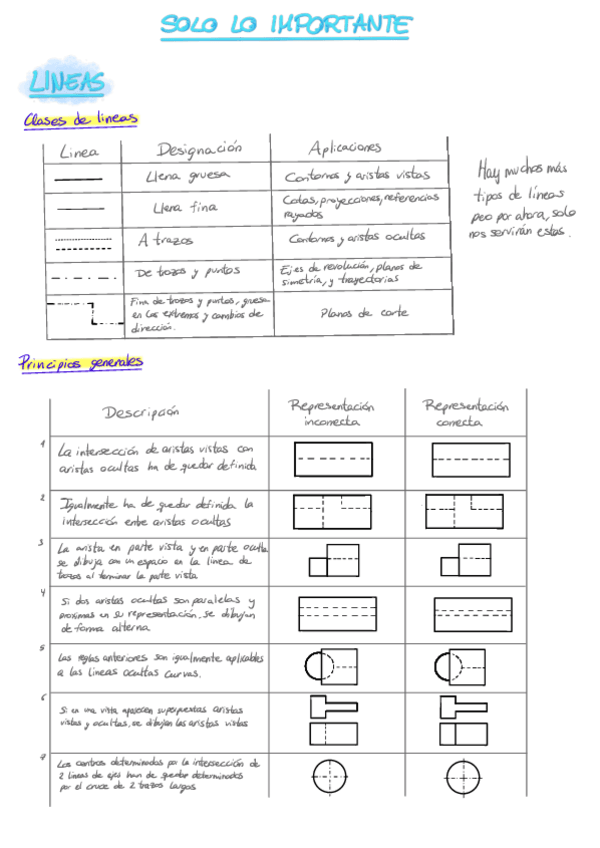 SOLO LO IMPORTANTE
LINEAS
Clases de lineas
Linea
Designación
Aplicaciones
Llena gruesa
Contornos y aristas vistas
Llena fina
Cotas, proyecciones, referencias
rayados
A trazos
Contornos y aristas ocultas
De trazos y puntos
Ejes de revolución, planos de
simetría, y trayectorias
Fina de trazos y puntos, gruesa
en los extremos y cambios de
dirección.
Planos de corte
Hay muchos más
tipos de líneas
peo por ahora, solo
nos servirán estas.
Principios generales
Descripción
Representación
incorrecta
Representación
correcta
1
La intersección de aristas vistas con
aristas ocultas ha de quedar definida
2
Igualmente ha de quedar definida la
intersección entre aristas ocultas
3
La arista en parte vista y en parte oculta
se dibuja con un espacio en la linea de
trazos al terminar la parte vista
4
Si dos aristas ocultas son paralelas y
proximas en su representación, se dibujan
de forma alterna
5
Las reglas anteriores son igualmente aplicables
a las lineas ocultas curvas.
6
Si en una vista aparecen superpuestas aristas
vistas y ocultas, se dibujan las aristas vistas
7
Los centros determinados por la intersección de
2 lineas de ejes han de quedar determinados
por el cruce de 2 trazos largos